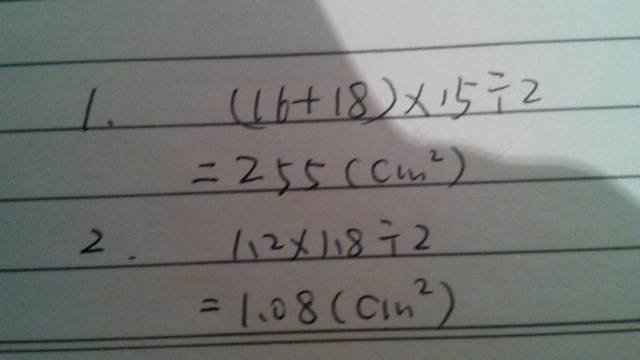 1. (16+18)×15÷2
=255(cm²)
2. 1.2×1.8÷2
=1.08(cm²)